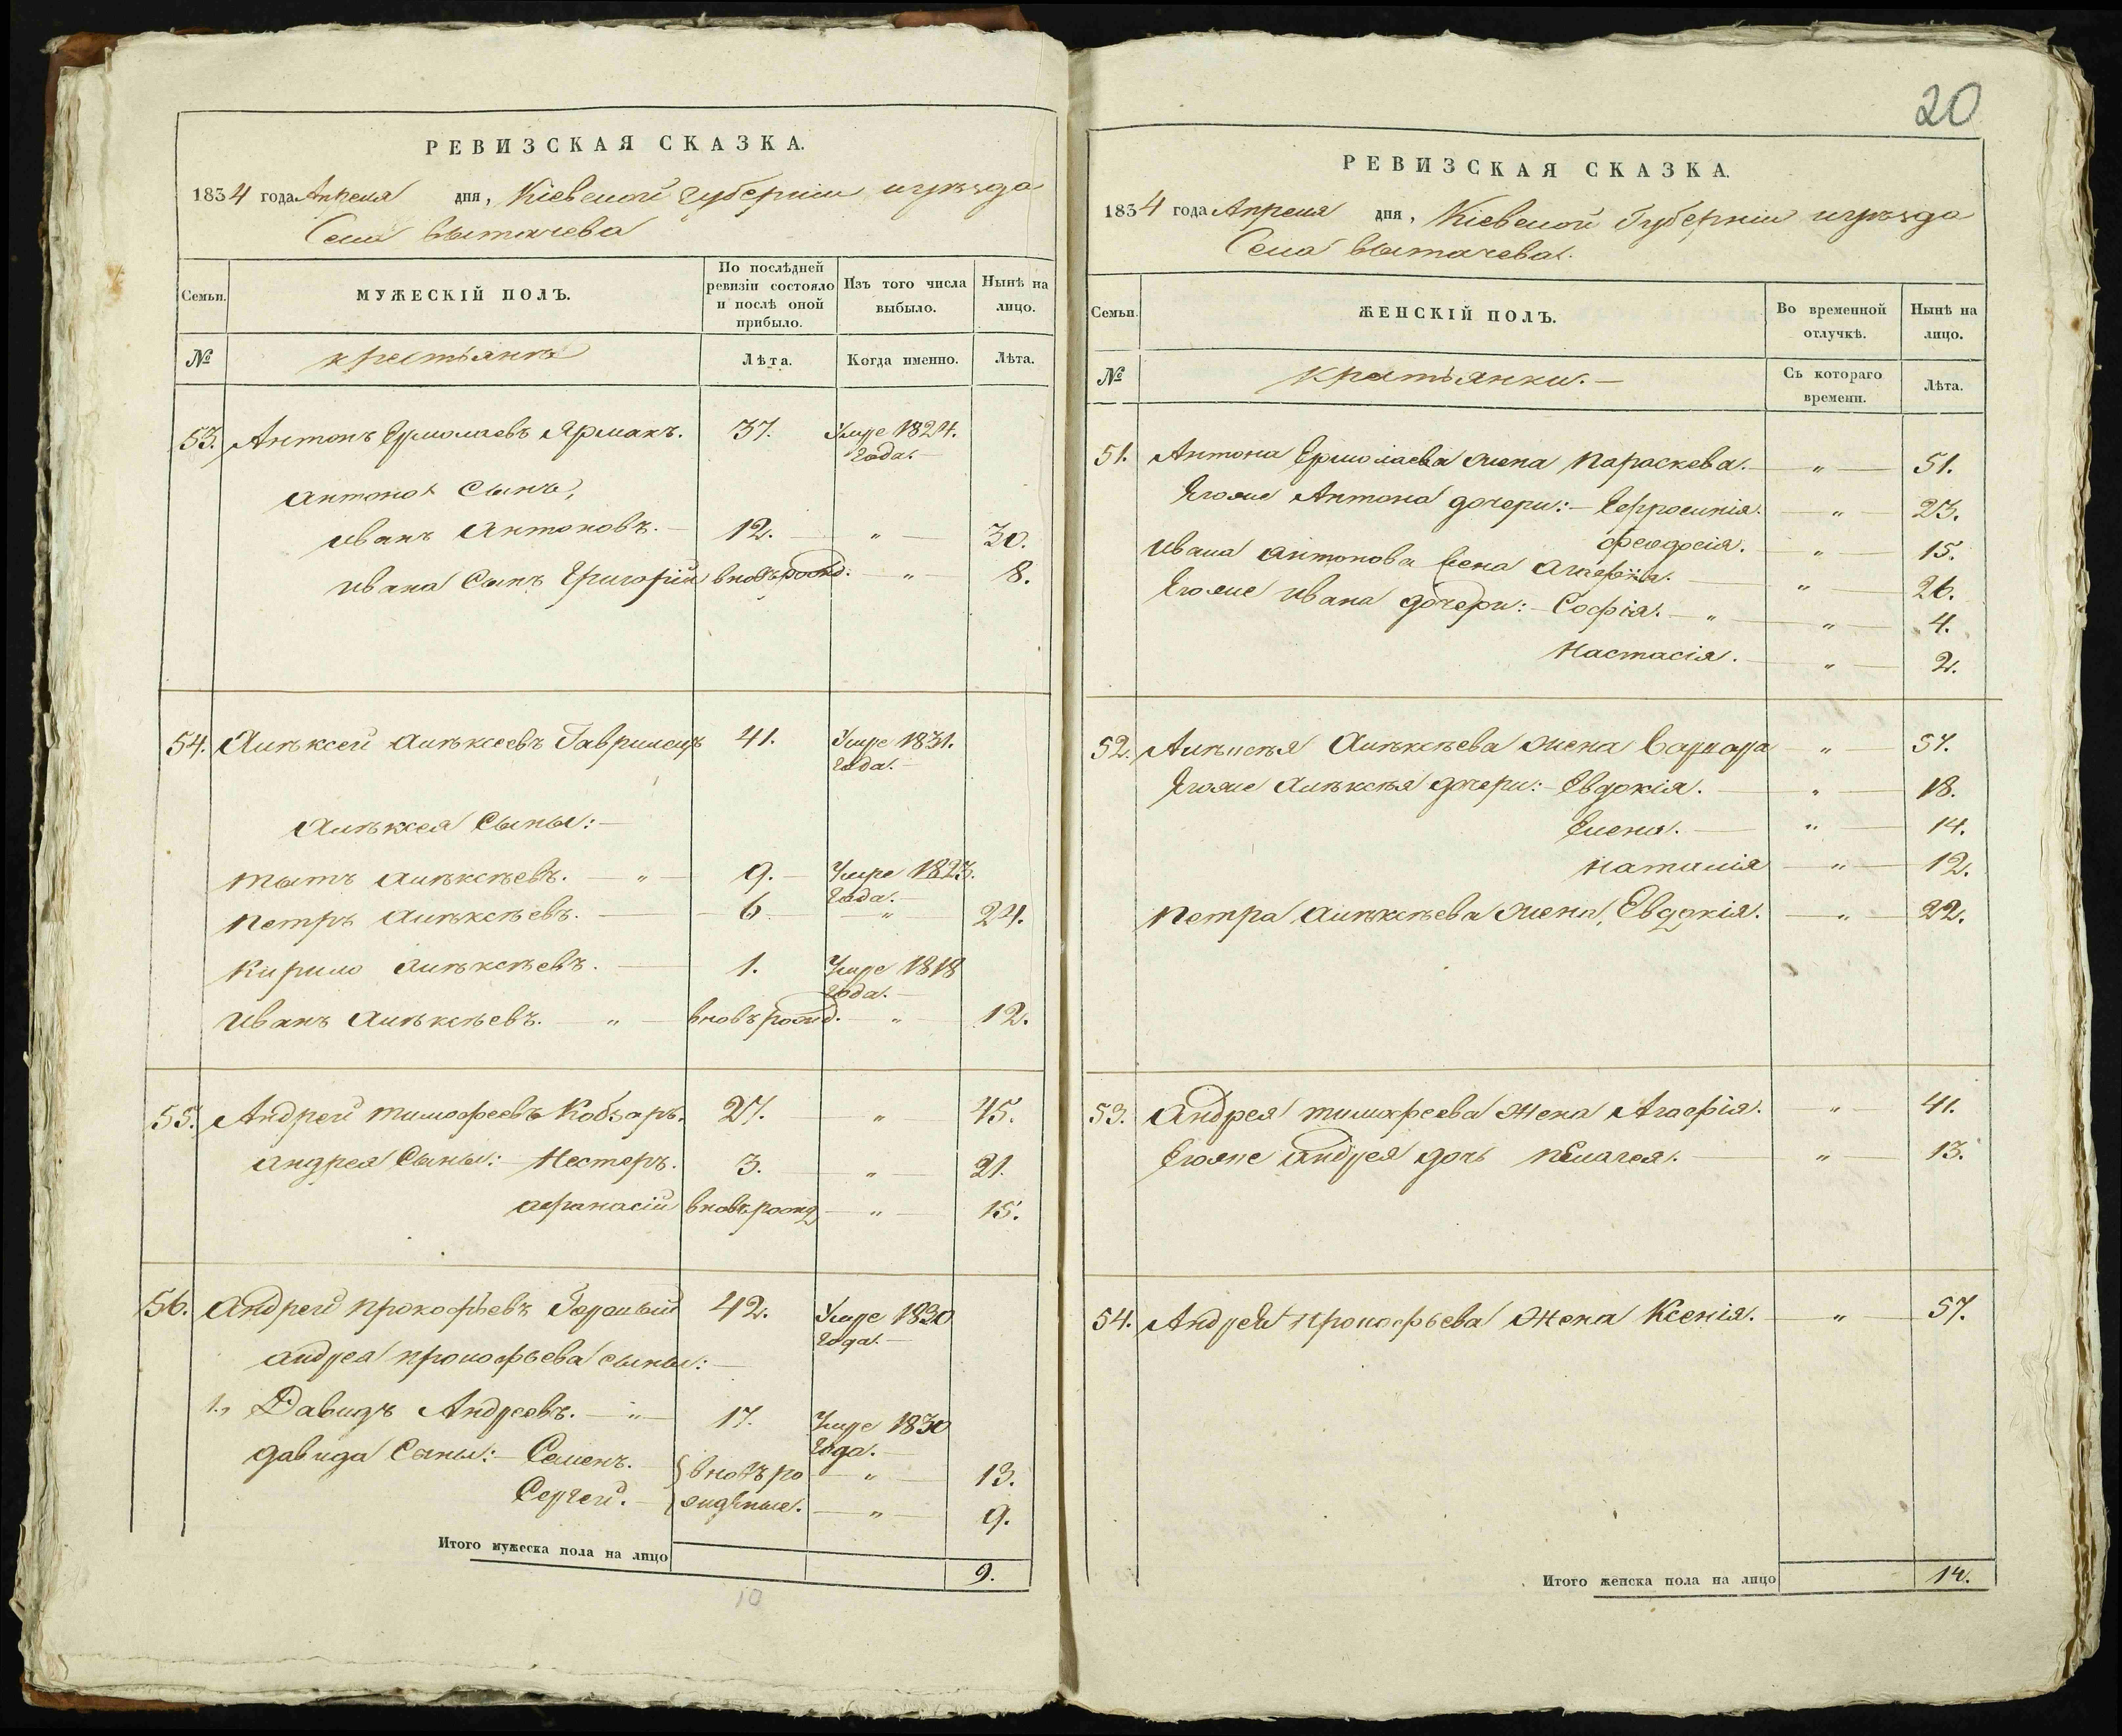 РЕВИЗСКАЯ СКАЗКА.
1834 года Апреля дня, Кіевской губерніи и уѣзда
Села Вытачева
Семьи. МУЖЕСКІЙ ПОЛЪ. По послѣдней ревизіи состояло и послѣ оной прибыло. Изъ того числа выбыло. Нынѣ на лицо.
№ крестьянъ Лѣта. Когда именно. Лѣта.
53. Антонъ Ермолаевъ Ярмакъ. 37. Умре 1824.
года.
Антона Сынъ,
Иванъ Антоновъ. 12. „ 30.
Ивана Сынъ Григорій вновь рожд. „ 8.
54. Алѣксей Алѣксеевъ Гаврилецъ 41. Умре 1831.
года.
Алѣксея Сыны:
Тытъ Алѣксѣевъ. „ 9. Умре 1823.
года.
Петръ Алѣксѣевъ. 6 „ 24.
Кирило Алѣксѣевъ. 1. Умре 1818
года.
Иванъ Алѣксѣевъ. „ вновь рожд. „ 12.
55. Андрей Тимофеевъ Кобзарь. 27. „ 45.
Андрея Сыны: Нестеръ. 3. „ 21.
Афанасій вновь рожд „ 15.
56. Андрей Прокофьевъ 42. Умре 1830
года.
Андрея Прокофьева сыны:
1., Давидъ Андреевъ. „ 17. Умре 1830
года.
Давида Сыны: Семенъ. вновь ро „ 13.
Сергей. жденные. „ 9.
Итого мужеска пола на лицо 9.
10
20
РЕВИЗСКАЯ СКАЗКА.
1834 года Апреля дня, Кіевской Губерніи и уѣзда
Села Вытачева.
Семьи. ЖЕНСКІЙ ПОЛЪ. Во временной отлучкѣ. Нынѣ на лицо.
№ крестьянки. Съ котораго времени. Лѣта.
51. Антона Ермолаева жена Параскева. „ 51.
Егоже Антона дочери: Ефросинія. „ 23.
Феодосія. „ 15.
Ивана Антонова жена „ 26.
Егоже Ивана дочери: Софія. „ „ 4.
Настасія. „ 2.
52. Алѣксѣя Алѣксѣева жена Варвара „ 57.
Егоже Алѣксѣя дочери: Евдокія. „ 18.
Елена. „ 14.
Наталія „ 12.
Петра Алѣксѣева жена, Евдокія. „ 22.
53. Андрея Тимофеева Жена Агафія. „ 41.
Егоже Андрея дочь Пелагея. „ 13.
54. Андрея Прокофьева Жена Ксенія. „ 57.
Итого женска пола на лицо 14.